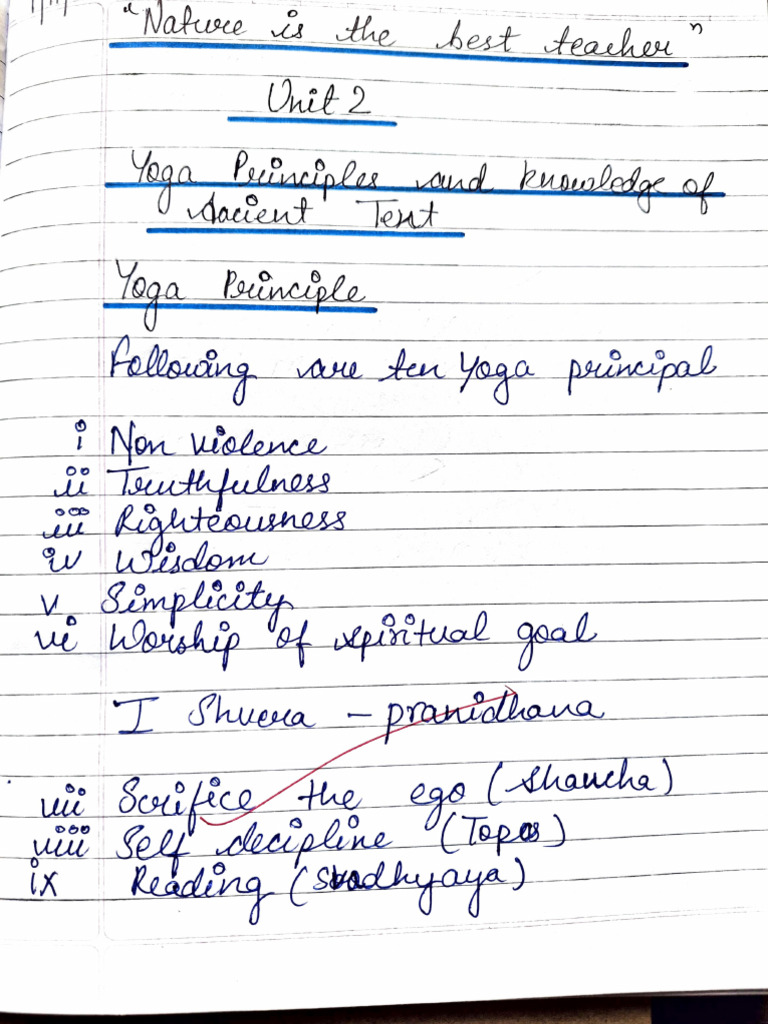 "Nature is the best teacher"
Unit 2
Yoga Principles and knowledge of
Ancient Text
Yoga Principle
Following are ten Yoga principal
i Non violence
ii Truthfulness
iii Righteousness
iv Wisdom
v Simplicity
vi Worship of spiritual goal
I Shvera - pranidhana
vii Scrifice the ego (Shaucha)
viii Self decipline (Tapas)
ix Reading (Svadhyaya)